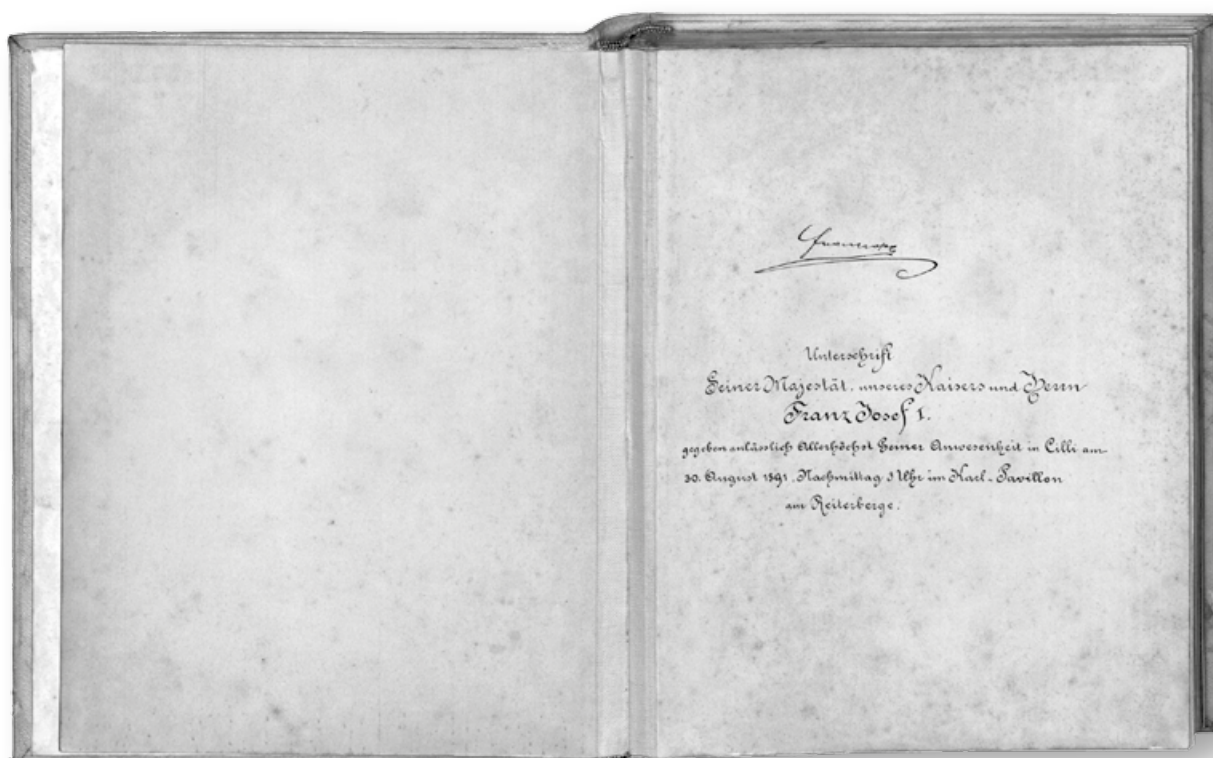 Unterschrift
Seiner Majestät, unseres Kaisers und Herrn
Franz Josef I.
gegeben anlässlich Allerhöchst Seiner Anwesenheit in Cilli am
30. August 1891. Nachmittag Uhr im Karl-Pavillon
am Reiterberge.